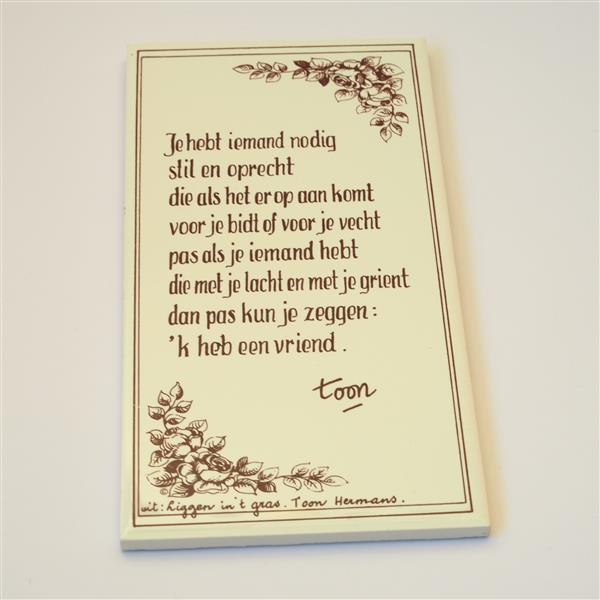 Je hebt iemand nodig
stil en oprecht
die als het er op aan komt
voor je bidt of voor je vecht
pas als je iemand hebt
die met je lacht en met je grient
dan pas kun je zeggen:
'k heb een vriend.
toon
©
uit: Liggen in 't gras. Toon Hermans.